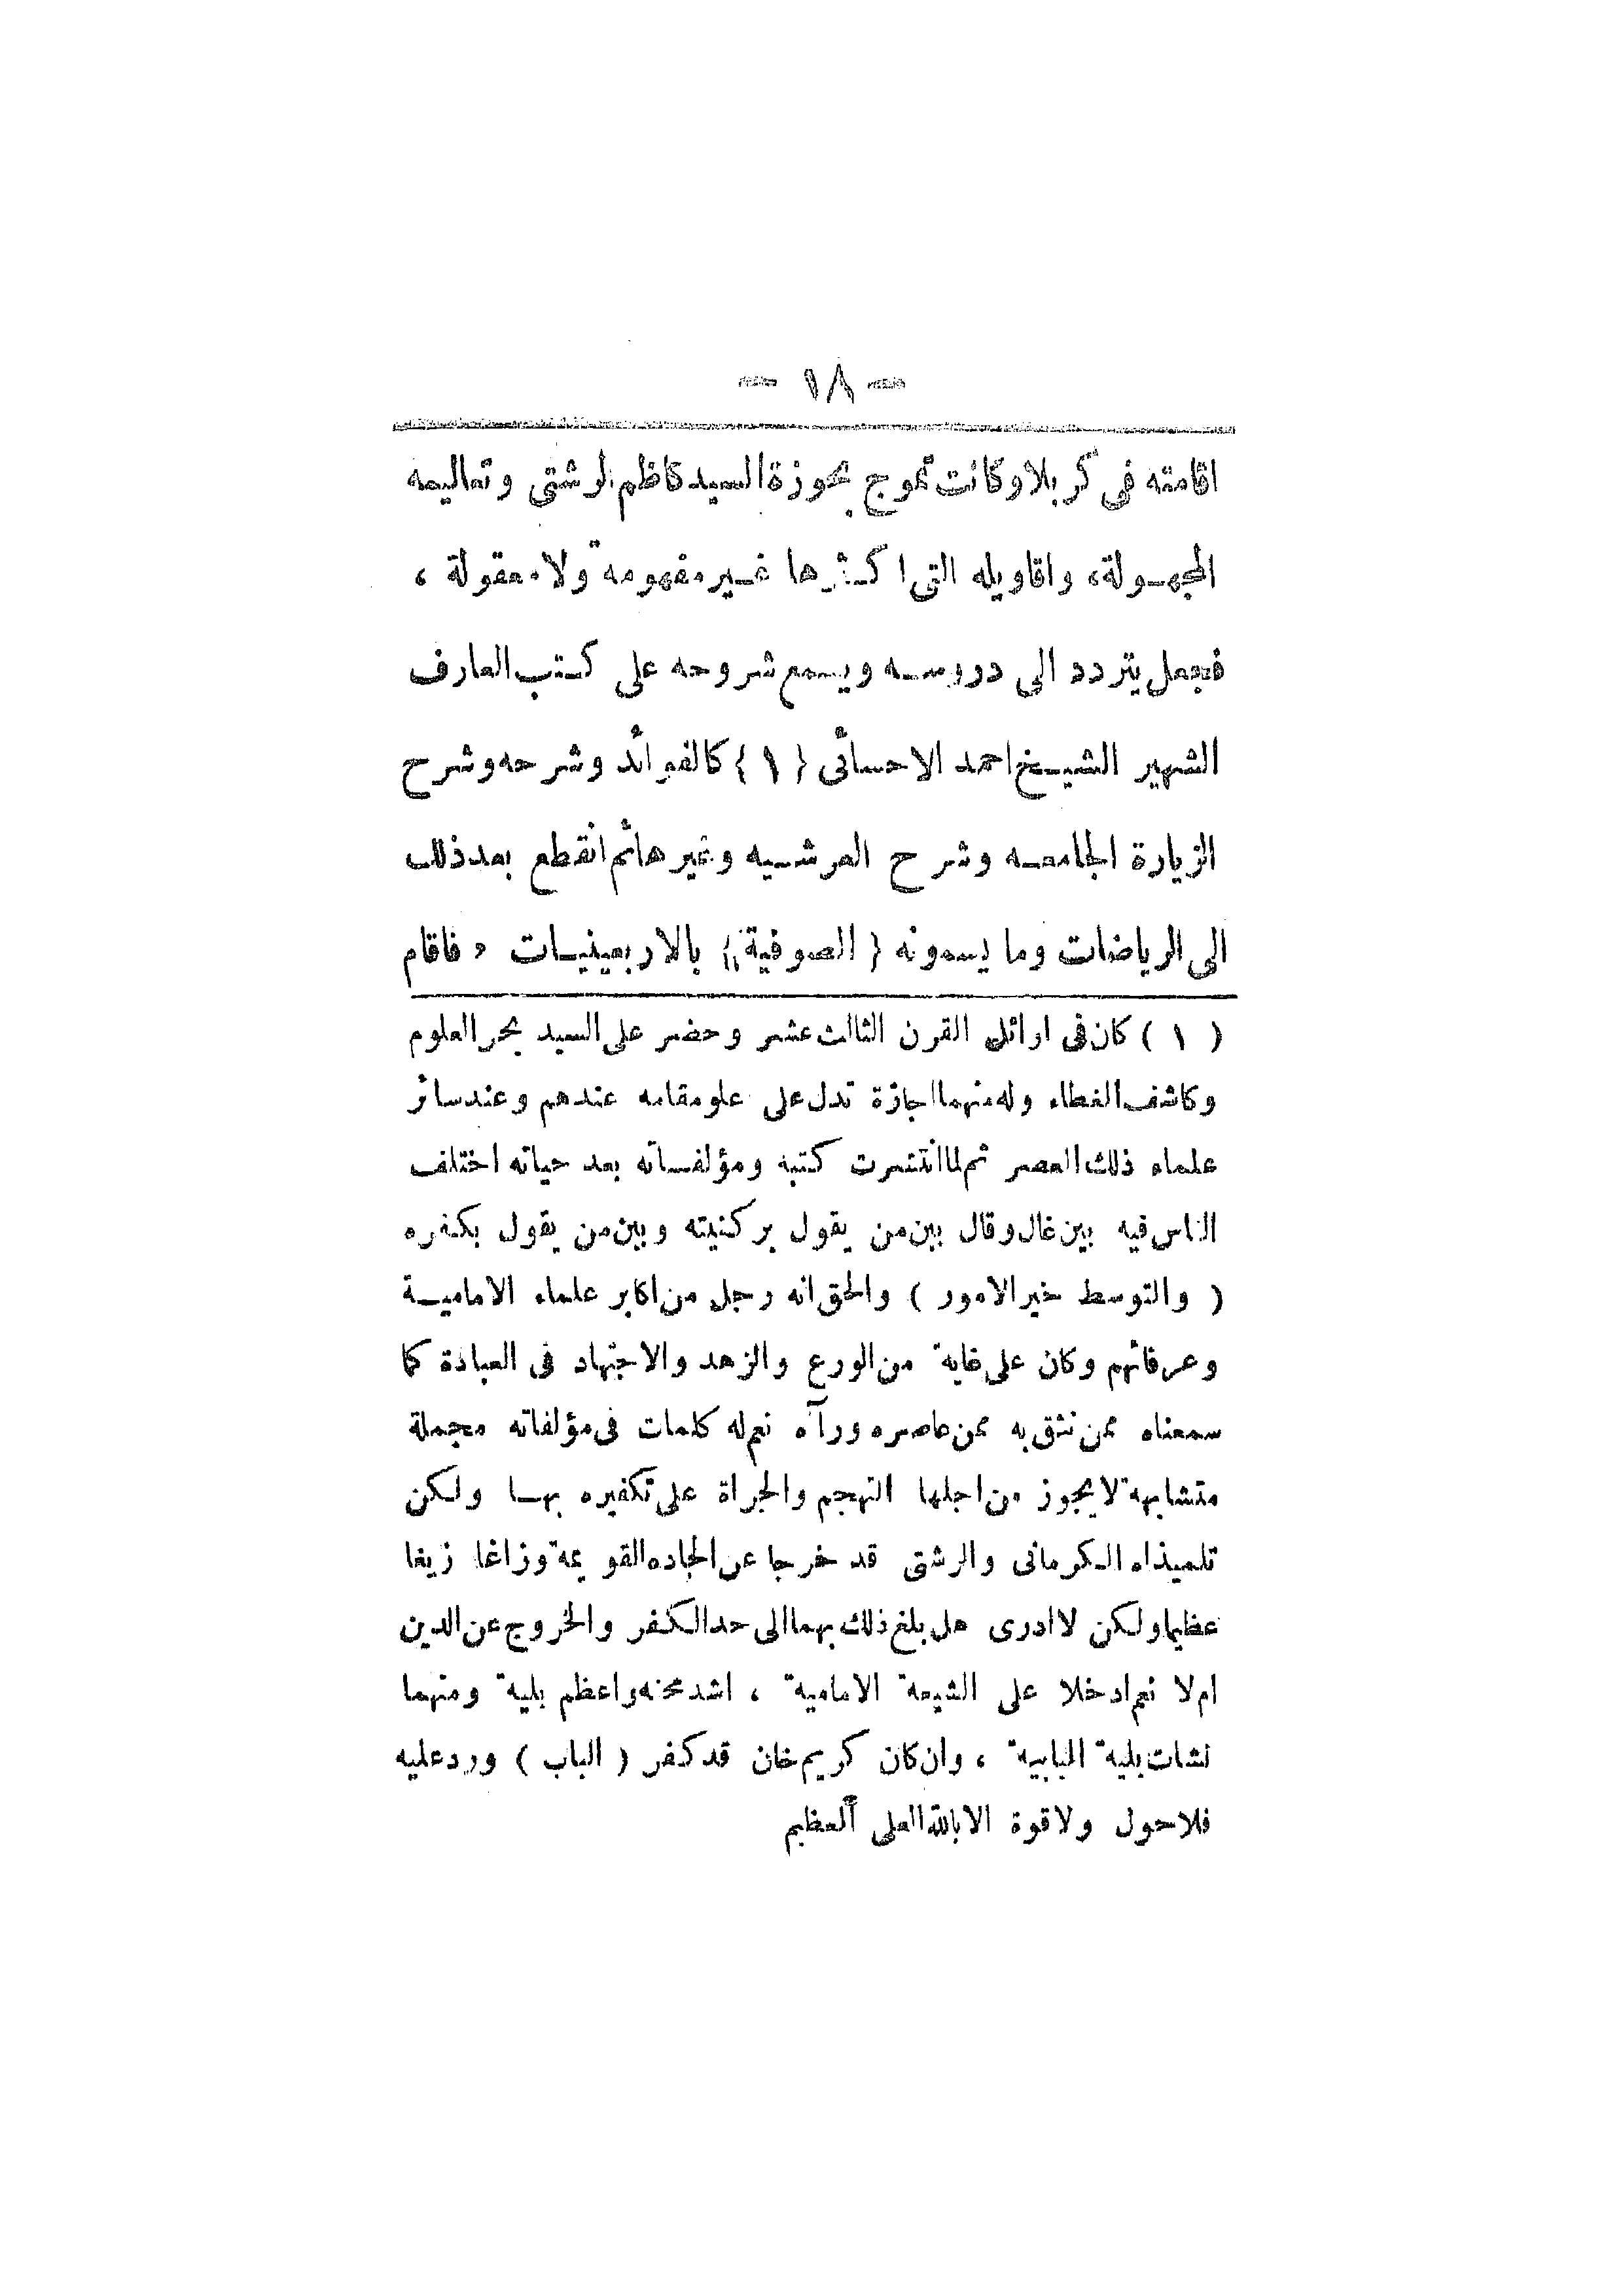 - ١٨ -
اقامته في كربلا وكانت تموج بحوزة السيد كاظم الرشتي وتعاليمه
المجهولة، واقاويله التي اكثرها غير مفهومة ولا معقولة ،
فجعل يتردد الى دروسه ويسمع شروحه على كتب العارف
الشهير الشيخ احمد الاحسائي {١} كالفوائد وشرحه وشرح
الزيارة الجامعه وشرح العرشيه وغيرها ثم انقطع بعد ذلك
الى الرياضات وما يسمونه {الصوفية} بالاربعينيات « فاقام
( ١ ) كان في اوائل القرن الثالث عشر وحضر على السيد بحر العلوم
وكاشف الغطاء وله منهما اجازة تدل على علو مقامه عندهم وعند سائر
علماء ذلك العصر ثم لما انتشرت كتبه ومؤلفاته بعد حياته اختلف
الناس فيه بين غال وقال بين من يقول بركنيته وبين من يقول بكفره
( والتوسط خير الامور ) والحق انه رجل من اكابر علماء الامامية
وعرفائهم وكان على غاية من الورع والزهد والاجتهاد في العبادة كما
سمعناه ممن نثق به ممن عاصره ورآه نعم له كلمات في مؤلفاته مجملة
متشابهة لا يجوز من اجلها التهجم والجراة على تكفيره بها ولكن
تلميذاه الكرماني والرشتي قد خرجا عن الجاده القويمة وزاغا زيغا
عظيما ولكن لا ادري هل بلغ ذلك بهما الى حد الكفر والخروج عن الدين
ام لا نعم ادخلا على الشيعة الامامية ، اشد محنه واعظم بلية ومنهما
نشات بلية البابية ، وان كان كريم خان قد كفر ( الباب ) ورد عليه
فلا حول ولا قوة الا بالله العلي العظيم